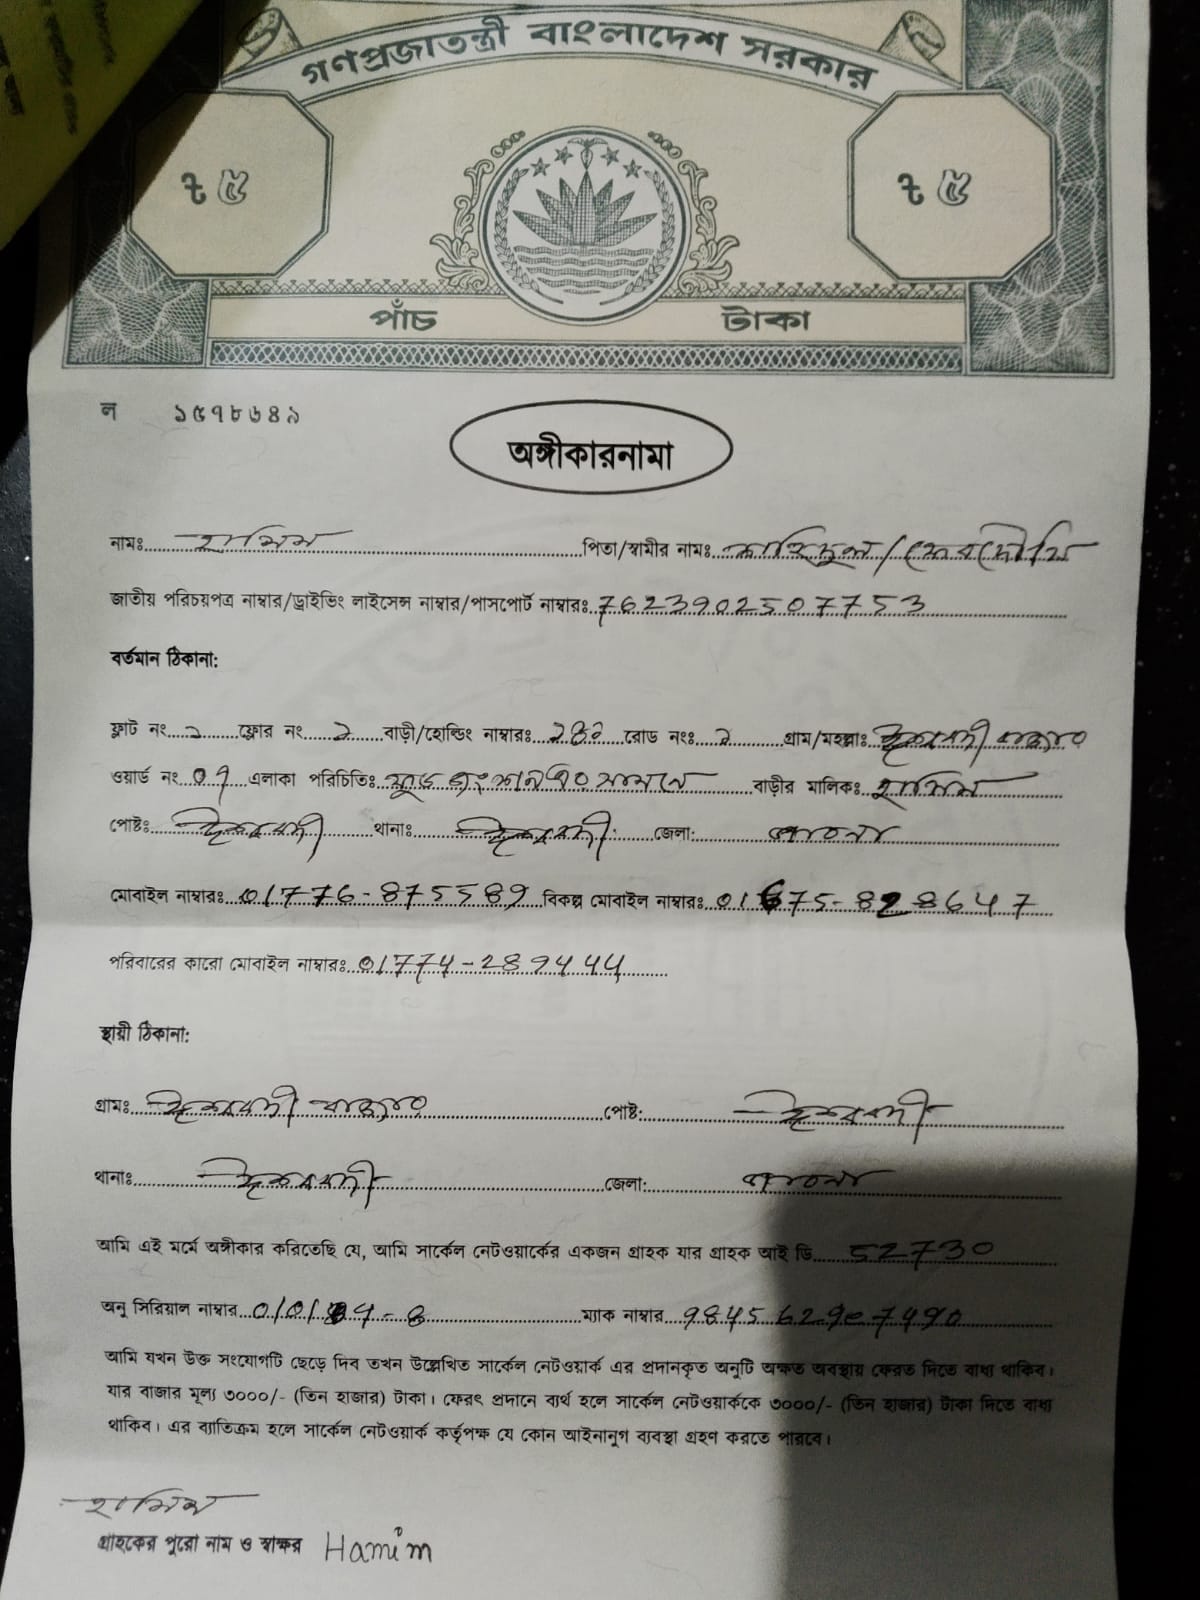 গণপ্রজাতন্ত্রী বাংলাদেশ সরকার
ট ৫ ট ৫
পাঁচ টাকা
ল ১৫৭৮৬৪৯
অঙ্গীকারনামা
নামঃ হামিম পিতা/স্বামীর নামঃ / ফেরদৌসি
জাতীয় পরিচয়পত্র নাম্বার/ড্রাইভিং লাইসেন্স নাম্বার/পাসপোর্ট নাম্বারঃ 7623902507753
বর্তমান ঠিকানা:
ফ্লাট নং ফ্লোর নং বাড়ী/হোল্ডিং নাম্বারঃ রোড নংঃ গ্রাম/মহল্লাঃ ঈশ্বরদী বাজার
ওয়ার্ড নং 07 এলাকা পরিচিতিঃ সামনে বাড়ীর মালিকঃ হামিম
পোষ্টঃ ঈশ্বরদী থানাঃ ঈশ্বরদী জেলা: পাবনা
মোবাইল নাম্বারঃ 01776-875589 বিকল্প মোবাইল নাম্বারঃ 01675-828647
পরিবারের কারো মোবাইল নাম্বারঃ 01774-289444
স্থায়ী ঠিকানা:
গ্রামঃ ঈশ্বরদী বাজার পোষ্ট: ঈশ্বরদী
থানাঃ ঈশ্বরদী জেলা: পাবনা
আমি এই মর্মে অঙ্গীকার করিতেছি যে, আমি সার্কেল নেটওয়ার্কের একজন গ্রাহক যার গ্রাহক আই ডি 52730
অনু সিরিয়াল নাম্বার ম্যাক নাম্বার
আমি যখন উক্ত সংযোগটি ছেড়ে দিব তখন উল্লেখিত সার্কেল নেটওয়ার্ক এর প্রদানকৃত অনুটি অক্ষত অবস্থায় ফেরত দিতে বাধ্য থাকিব।
যার বাজার মূল্য ৩০০০/- (তিন হাজার) টাকা। ফেরৎ প্রদানে ব্যর্থ হলে সার্কেল নেটওয়ার্ককে ৩০০০/- (তিন হাজার) টাকা দিতে বাধ্য
থাকিব। এর ব্যাতিক্রম হলে সার্কেল নেটওয়ার্ক কর্তৃপক্ষ যে কোন আইনানুগ ব্যবস্থা গ্রহণ করতে পারবে।
হামিম
গ্রাহকের পুরো নাম ও স্বাক্ষর Hamim